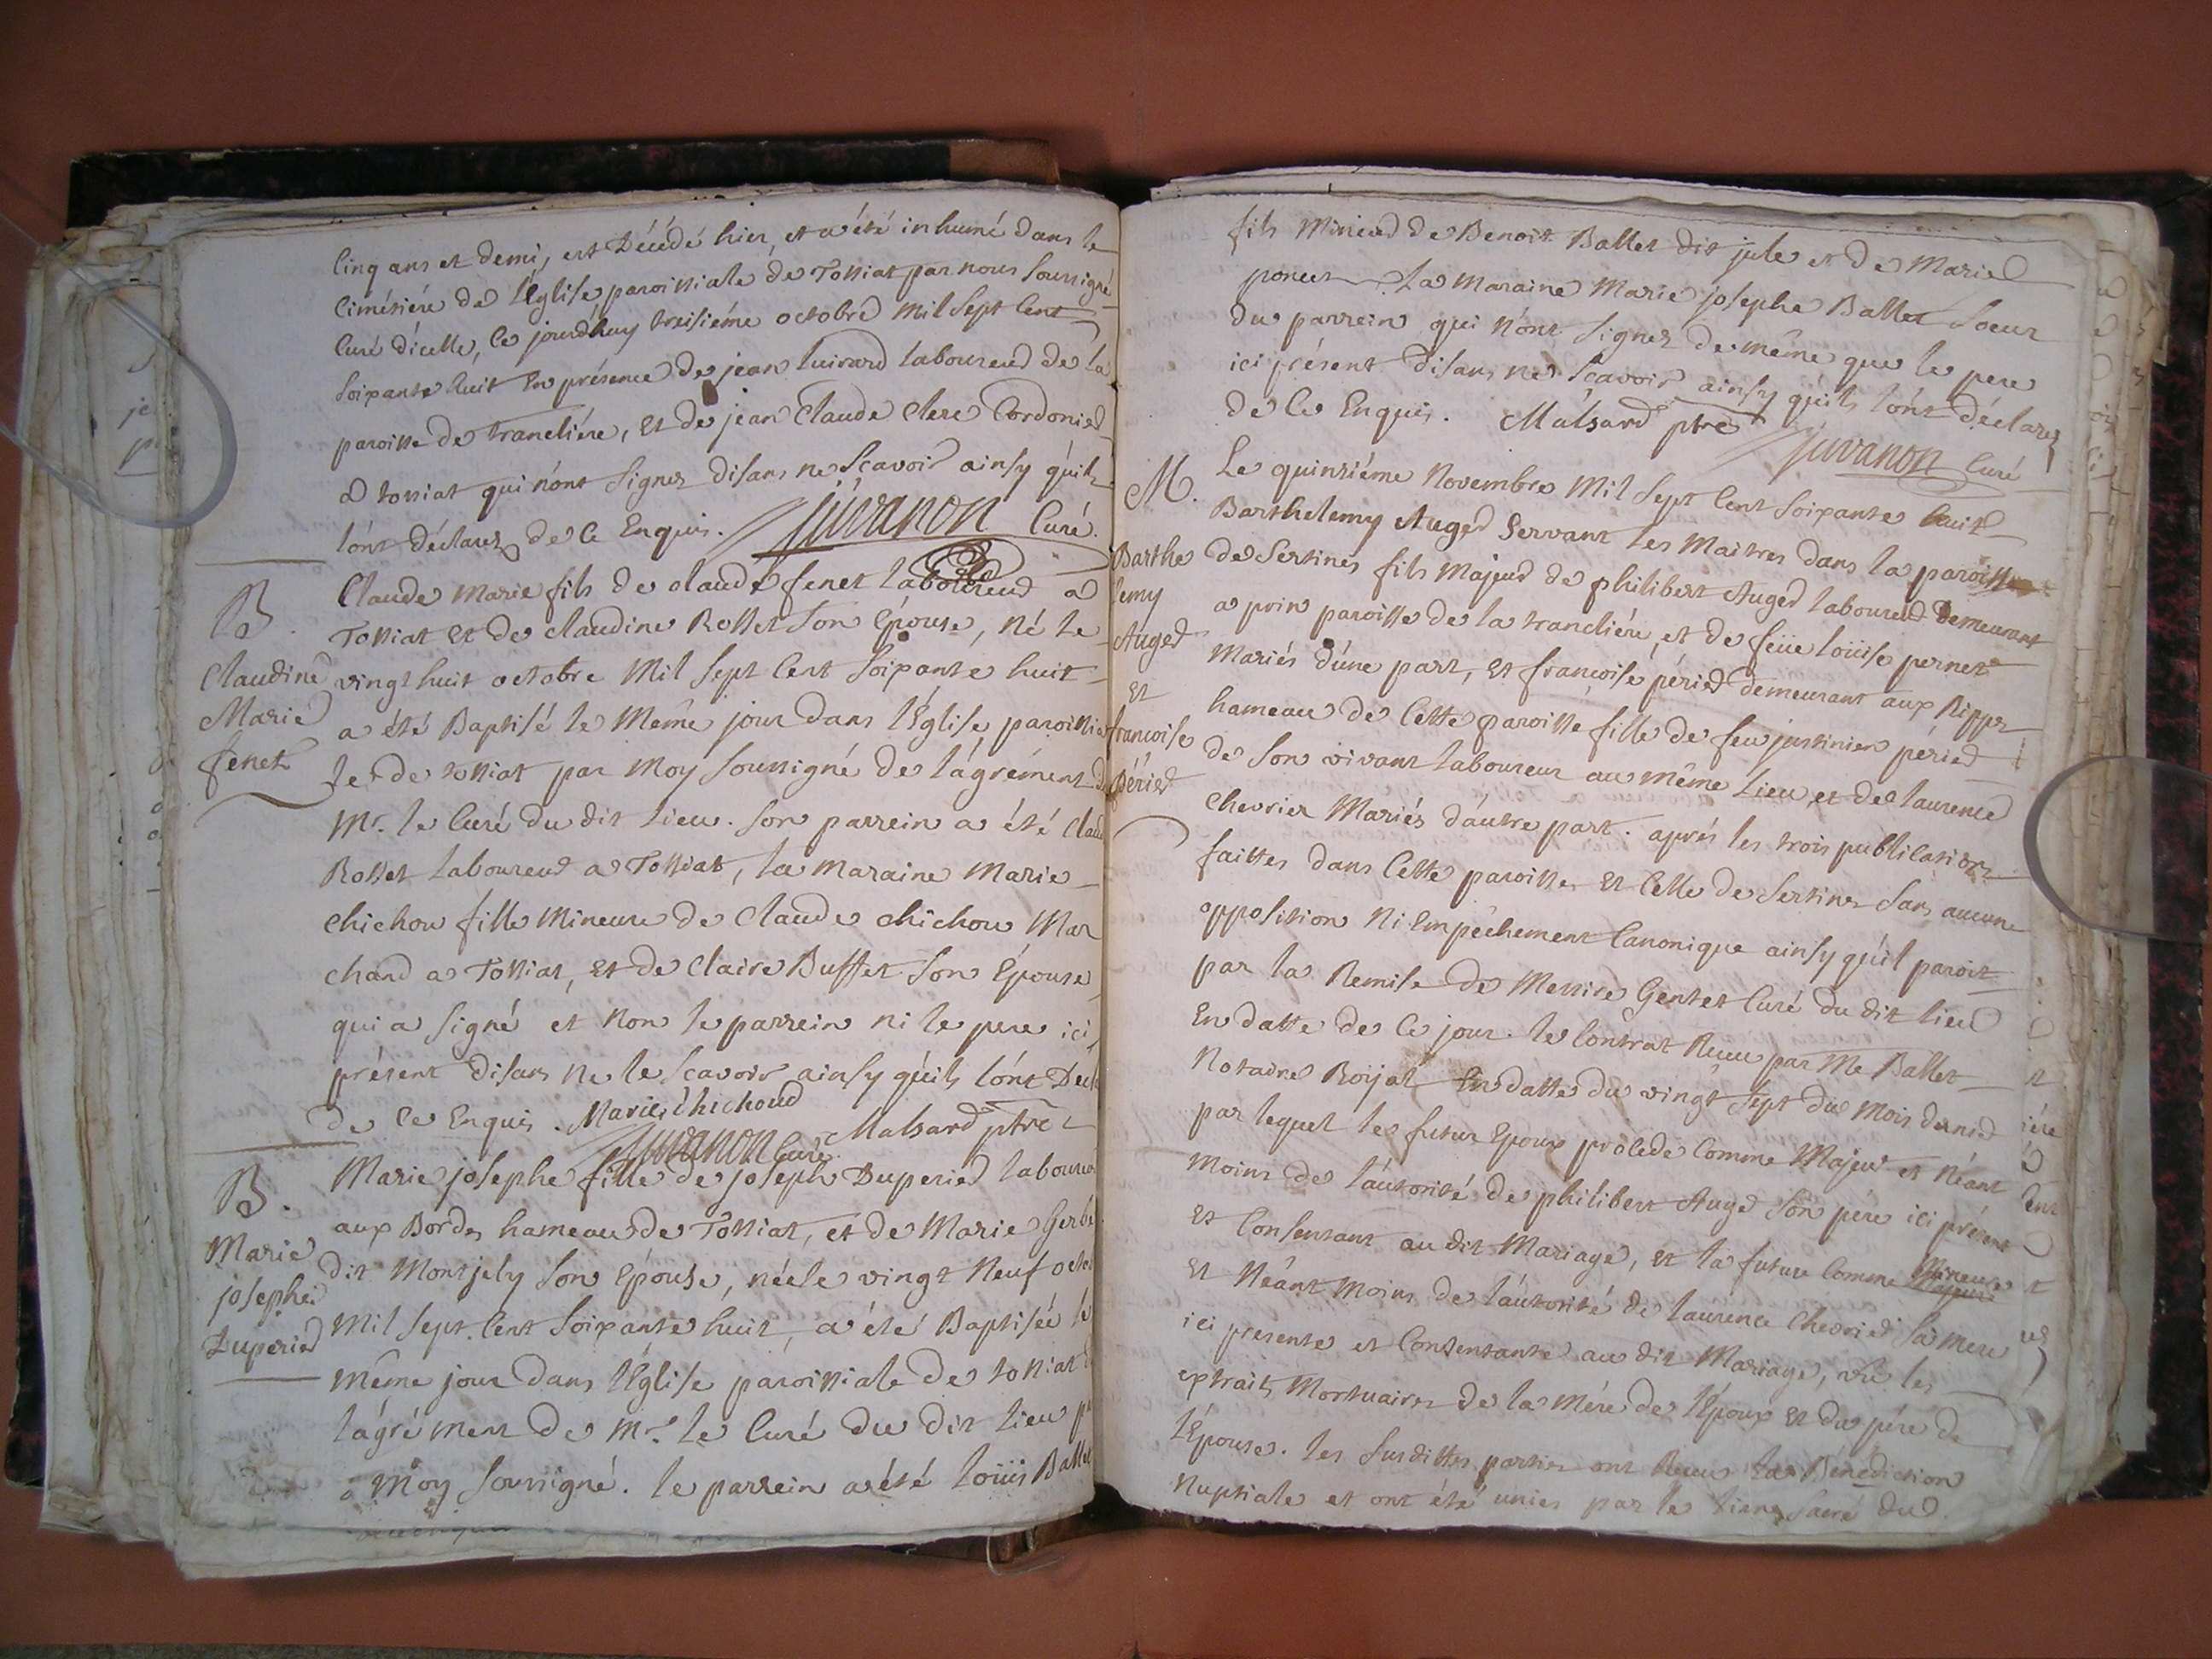 Cinq ans et demi, est Décédé hier, et a été inhumé dans le
Cimétiére de l'Eglise paroissiale de Tossiat par nous soussigné
Curé d'icelle, ce jourd'huy treisiéme octobre mil sept cent
soixante huit En présence de jean Cuirard laboureur de la
paroisse de tranclière, et de jean Claude Clere Cordonier
a tossiat qui n'ont signez disans ne sçavoir ainsy qu'ils
l'ont déclarez de ce Enquis. juvanon Curé.
B.
Claudine
Marie
fenet
Claude Marie fils de claude fenet laboureur a
Tossiat et de claudine Rosset son Epouse, né le
vingt huit octobre Mil sept Cent soixante huit
a été Baptisé le Même jour dans l'Eglise paroissia
le de tossiat par Moy soussigné de l'agrément de
Mr. le Curé du dit lieu. son parrein a été Claude
Rosset laboureur a Tossiat, la Maraine Marie
Chichou fille Mineure de Claude chichou Mar
chand a Tossiat, et de Claire Buffet son Epouse
qui a signé et Non le parrein ni le pere ici
présent disans Ne le sçavoir ainsy qu'ils l'ont Décla
de ce Enquis. Marie Chichoud
juvanon Curé Malsard ptre
B.
Marie
josephe
Duperier
Marie josephe fille de joseph Duperier laboureur
aux Bordes hameau de Tossiat, et de Marie Gerbe
dit Montjely son Epouse, née le vingt Neuf octob
Mil sept Cent soixante huit, a été Baptisée le
même jour dans l'Eglise paroissiale de tossiat de
l'agrément de Mr. le Curé du dit lieu par
Moy soussigné. le parrein a été loüis Ballet
fils Mineur de Benoit Ballet dit jule et de Marie
poncet. la Maraine Marie josephe Ballet soeur
du parrein qui n'ont signez de même que le pere
ici présent disans ne sçavoir ainsy qu'ils l'ont déclarez
de ce Enquis. Malsard ptre juvanon Curé
M.
Barthe
lemy
Auger
Et
francoise
Périer
Le quinziéme Novembre Mil sept Cent soixante huit
Barthelemy Auger servant les Maitres dans la paroisse
de Sertines fils Majeur de philibert Auger laboureur demeurant
a prin paroisse de la trancliére, et de feüe loüise pernet
Mariés d'une part, et francoise périer demeurant aux Rippes
hameau de Cette paroisse fille de feu justinien périer
de son vivant laboureur au même lieu et de laurence
Chevrier Mariés d'autre part. aprés les trois publications
faittes dans Cette paroisse et Celle de Sertines sans aucune
opposition Ni Empêchement Canonique ainsy qu'il paroit
par la Remise de Messire Gentet Curé du dit lieu
En datte de ce jour. le Contrat Reçu par Me Ballet
Notaire Roÿal En datte du vingt sept du Mois dernier
par lequel le futur Epoux procede Comme Majeur et Néant
moins de l'autorité de philibert Auger son pére ici présent
et Consentant au dit Mariage, et la future Comme Mineure
et Néantmoins de l'autorité de laurence Chevrier sa mere
ici presente et Consentante au dit Mariage, vu les
extraits Mortuaires de la Mére de l'Epoux et du pére de
l'Epouse. les susdittes parties ont Reçu la Bénédiction
Nuptiale et ont été unies par le liens sacré dud.